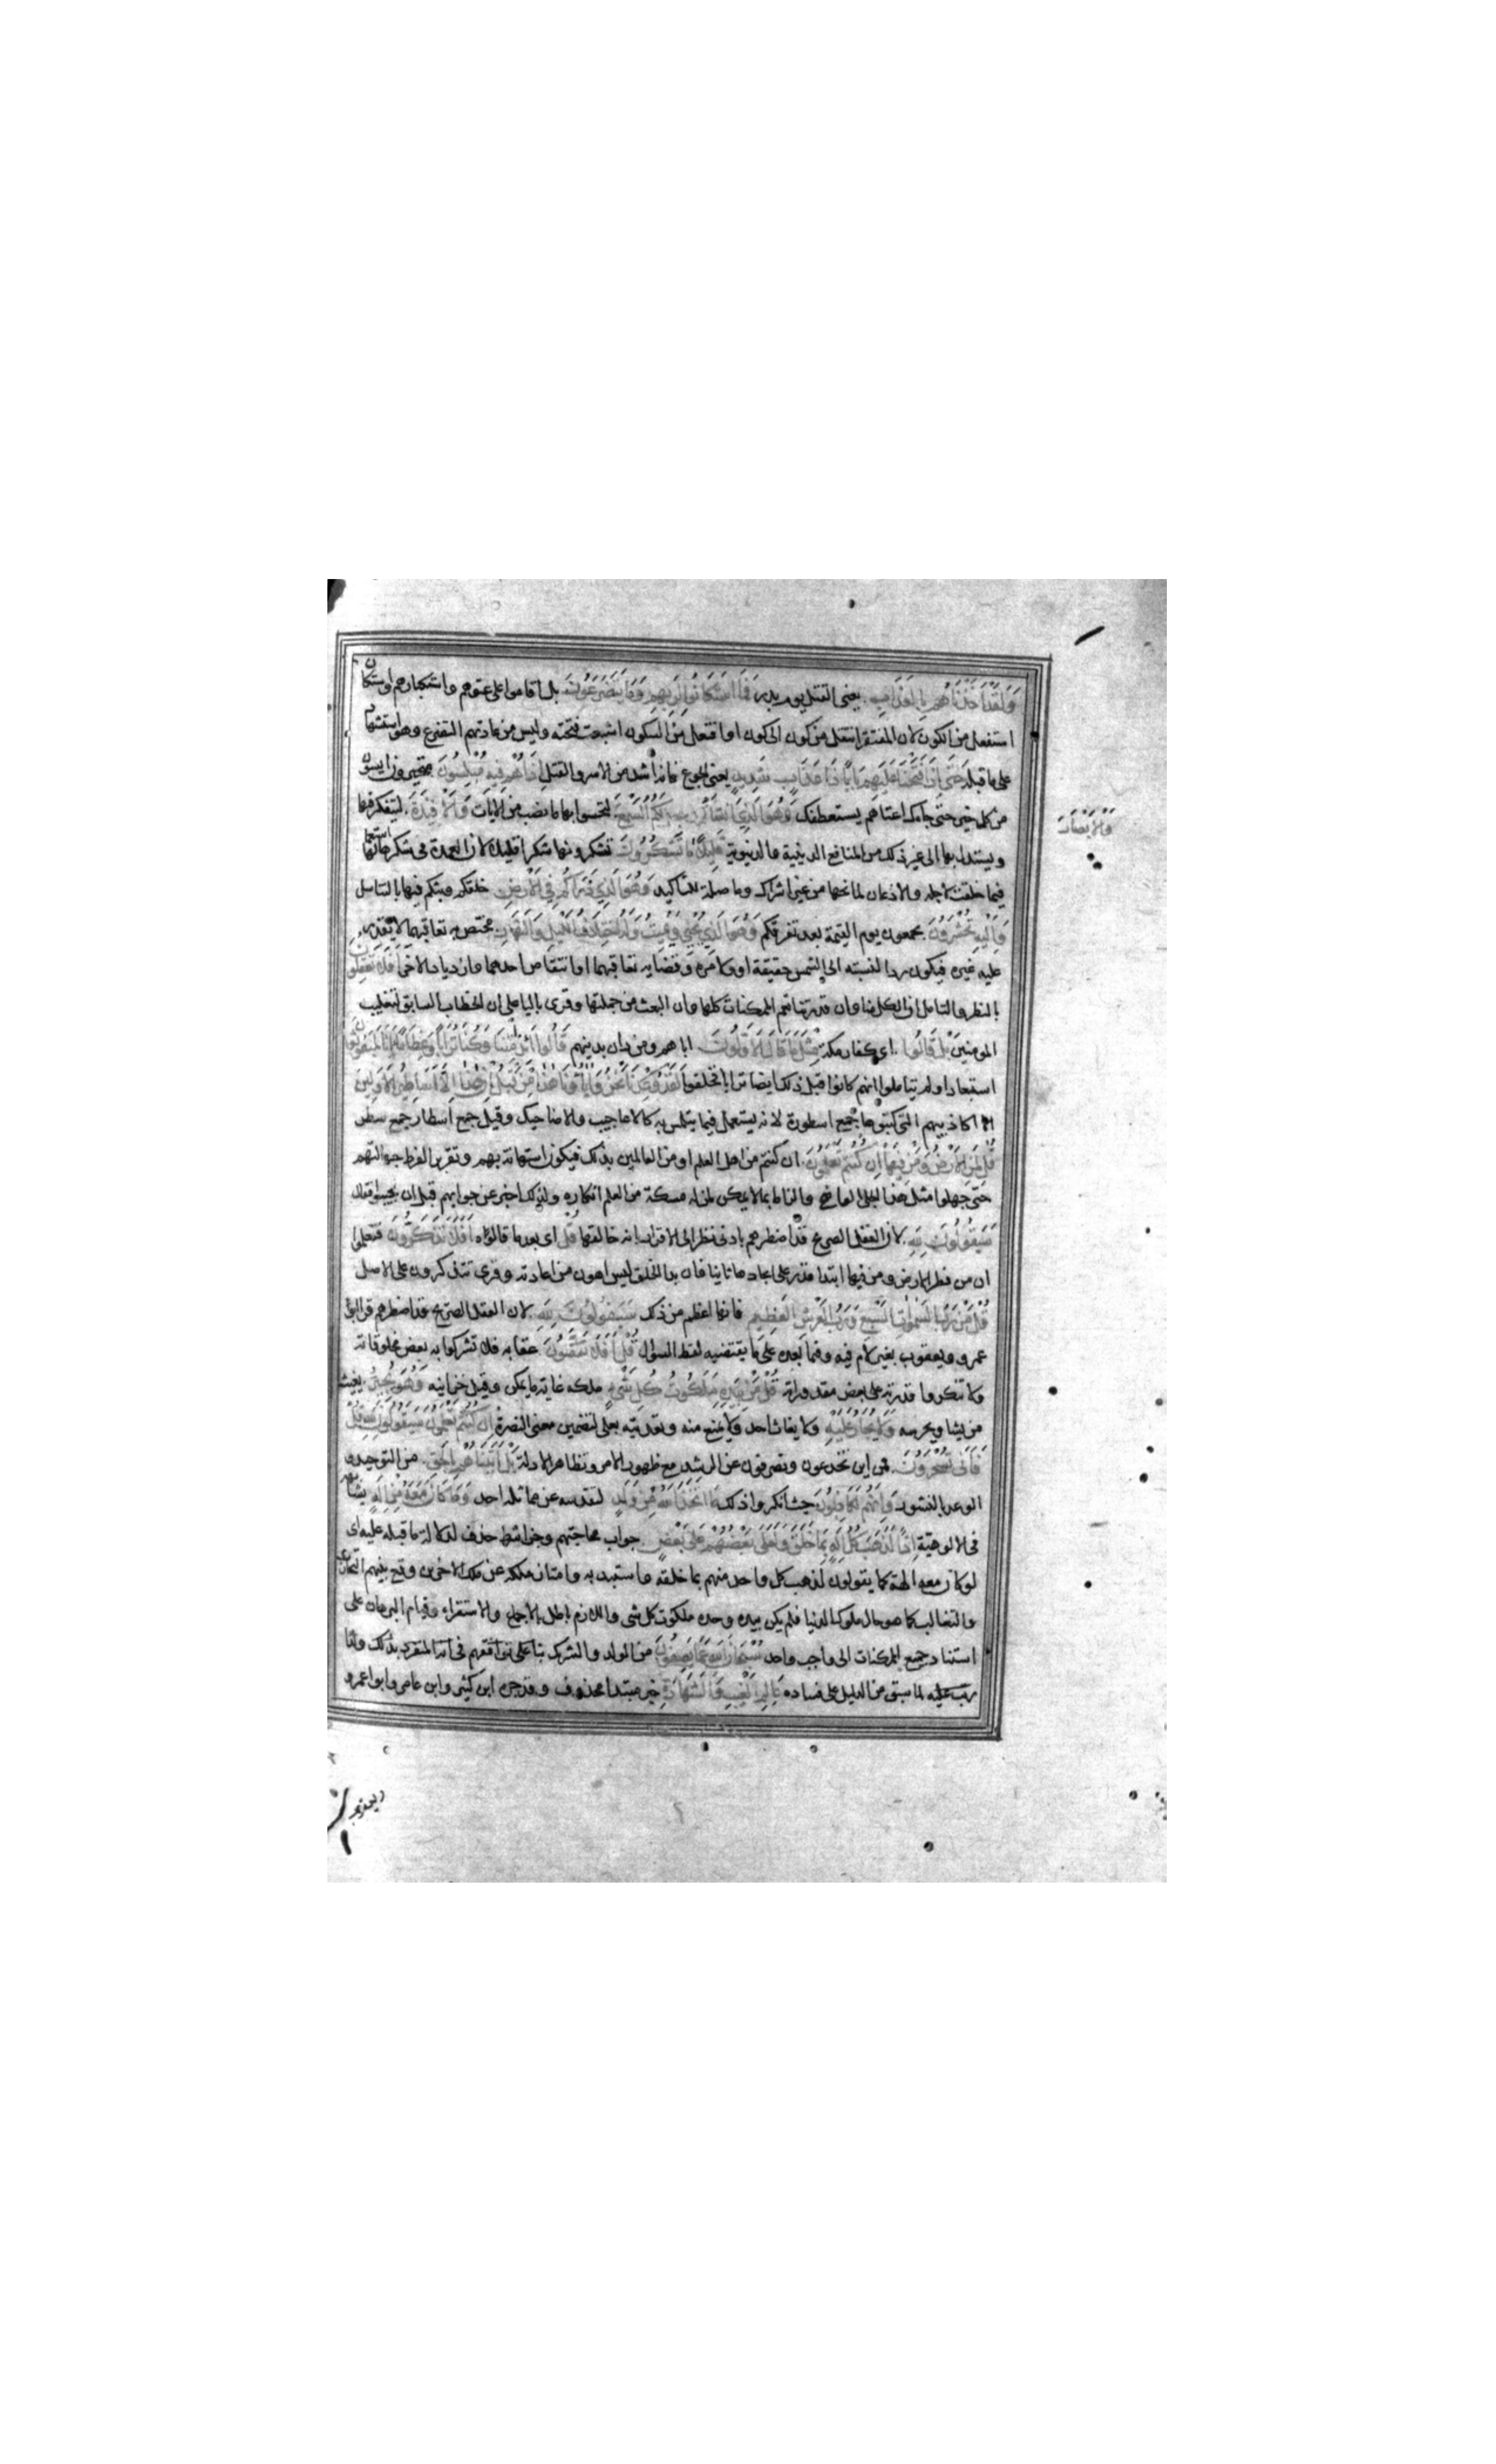 وَلَقَدْ أَخَذْنَاهُمْ بِالْعَذَابِ يعنى القتل يوم بدر فَمَا اسْتَكَانُوا لِرَبِّهِمْ وَمَا يَتَضَرَّعُونَ بل اقاموا على عتوهم واستكبارهم واستكان
استفعل من الكون لان المفتقر انتقل من كون الى كون او افتعل من السكون اشبعت فتحته وليس من عادتهم التضرع وهو استشهاد
على ما قبله حَتَّى إِذَا فَتَحْنَا عَلَيْهِمْ بَابًا ذَا عَذَابٍ شَدِيدٍ يعنى الجوع فانه اشد من الاسر والقتل إِذَا هُمْ فِيهِ مُبْلِسُونَ متحيرون ايسون
من كل خير حتى جاءك اعتاهم يستعطفك وَهُوَ الَّذِي أَنْشَأَ لَكُمُ السَّمْعَ لتحسوا بها ما نصب من الايات وَالْأَفْئِدَةَ لتتفكر فيها
وَالْأَبْصَارَ
ويستدل بها الى غير ذلك من المنافع الدينية والدنيوية قَلِيلًا مَا تَشْكُرُونَ تشكرونها شكرا قليلا لان العمدة فى شكرها استعمالها
فيما خلقت لاجله والاذعان لمانحها من غير اشراك وما صلة للتاكيد وَهُوَ الَّذِي ذَرَأَكُمْ فِي الْأَرْضِ خلقكم وبثكم فيها بالتناسل
وَإِلَيْهِ تُحْشَرُونَ تجمعون يوم القيمة بعد تفرقكم وَهُوَ الَّذِي يُحْيِي وَيُمِيتُ وَلَهُ اخْتِلَافُ اللَّيْلِ وَالنَّهَارِ مختص به تعاقبهما لا يقدر
عليه غيره فيكون ردا لنسبته الى الشمس حقيقة او لامره وقضايه تعاقبهما او انتقاص احدهما وازدياد الاخر أَفَلَا تَعْقِلُونَ
بالنظر والتامل ان الكل منا وان قدرتنا تعم الممكنات كلها وان البعث من جملتها وقرى باليا على ان الخطاب السابق لتغليب
المومنين بَلْ قَالُوا اى كفار مكة مِثْلَ مَا قَالَ الْأَوَّلُونَ اباهم ومن دان بدينهم قَالُوا أَئِذَا مِتْنَا وَكُنَّا تُرَابًا وَعِظَامًا أَئِنَّا لَمَبْعُوثُونَ
استبعادا ولم يتاملوا انهم كانوا قبل ذلك ايضا ترابا فخلقوا لَقَدْ وُعِدْنَا نَحْنُ وَآبَاؤُنَا هَذَا مِنْ قَبْلُ إِنْ هَذَا إِلَّا أَسَاطِيرُ الْأَوَّلِينَ
الا اكاذيبهم التى كتبوها جمع اسطورة لانه يستعمل فيما يتلهى به كالاعاجيب والاضاحيك وقيل جمع اسطار جمع سطر
قُلْ لِمَنِ الْأَرْضُ وَمَنْ فِيهَا إِنْ كُنْتُمْ تَعْلَمُونَ ان كنتم من اهل العلم او من العالمين بذلك فيكون استهانة بهم وتقرير الفرط جهالتهم
حتى جهلوا مثل هذا الجلى الواضح والزاما بما لا يمكن لمن له مسكة من العلم انكاره ولذلك اخبر عن جوابهم قبل ان يجيبوا فقال
سَيَقُولُونَ لِلَّهِ لان العقل الصريح قد اضطرهم بادنى نظر الى الاقرار بانه خالقها قُلْ اى بعد ما قالوه أَفَلَا تَذَكَّرُونَ فتعلموا
ان من فطر الارض ومن فيها ابتدا قدر على ايجادها ثانيا فان بدا الخلق ليس اهون من اعادته وقرى تتذكرون على الاصل
قُلْ مَنْ رَبُّ السَّمَوَاتِ السَّبْعِ وَرَبُّ الْعَرْشِ الْعَظِيمِ فانها اعظم من ذلك سَيَقُولُونَ لِلَّهِ لان العقل الصريح قد اضطرهم قرا ابو
عمرو ويعقوب بغير لام فيه وفيما بعده على ما يقتضيه لفظ السوال قُلْ أَفَلَا تَتَّقُونَ عقابه فلا تشركوا به بعض مخلوقاته
ولا تنكروا قدرته على بعض مقدوراته قُلْ مَنْ بِيَدِهِ مَلَكُوتُ كُلِّ شَيْءٍ ملكه غاية ما يمكن وقيل خزاينه وَهُوَ يُجِيرُ يغيث
من يشا ويحرسه وَلَا يُجَارُ عَلَيْهِ ولا يغاث احد ولا يمنع منه وتعديته بعلى لتضمين معنى النصرة إِنْ كُنْتُمْ تَعْلَمُونَ سَيَقُولُونَ لِلَّهِ قُلْ
فَأَنَّى تُسْحَرُونَ فمن اين تخدعون وتصرفون عن الرشد مع ظهور الامر وتظاهر الادلة بَلْ أَتَيْنَاهُمْ بِالْحَقِّ من التوحيد و
الوعد بالنشور وَإِنَّهُمْ لَكَاذِبُونَ حيث انكروا ذلك مَا اتَّخَذَ اللَّهُ مِنْ وَلَدٍ لتقدسه عن مماثلة احد وَمَا كَانَ مَعَهُ مِنْ إِلَهٍ يشاركه
فى الالوهية إِذًا لَذَهَبَ كُلُّ إِلَهٍ بِمَا خَلَقَ وَلَعَلَا بَعْضُهُمْ عَلَى بَعْضٍ جواب محاجتهم وجزا شرط حذف لدلالة ما قبله عليه اى
لو كان معه الهة كما يقولون لذهب كل واحد منهم بما خلقه واستبد به وامتاز ملكه عن ملك الاخرين ووقع بينهم التحارب
والتغالب كما هو حال ملوك الدنيا فلم يكن بيده وحده ملكوت كل شى واللازم باطل بالاجماع والاستقراء وقيام البرهان على
استناد جميع الممكنات الى واجب واحد سُبْحَانَ اللَّهِ عَمَّا يَصِفُونَ من الولد والشريك بنا على توافقهم فى انه المنفرد بذلك ولهذا
رتب عليه لما سبق من الدليل على فساده عَالِمِ الْغَيْبِ وَالشَّهَادَةِ خبر مبتدا محذوف وقد جره ابن كثير وابن عامر وابو عمرو